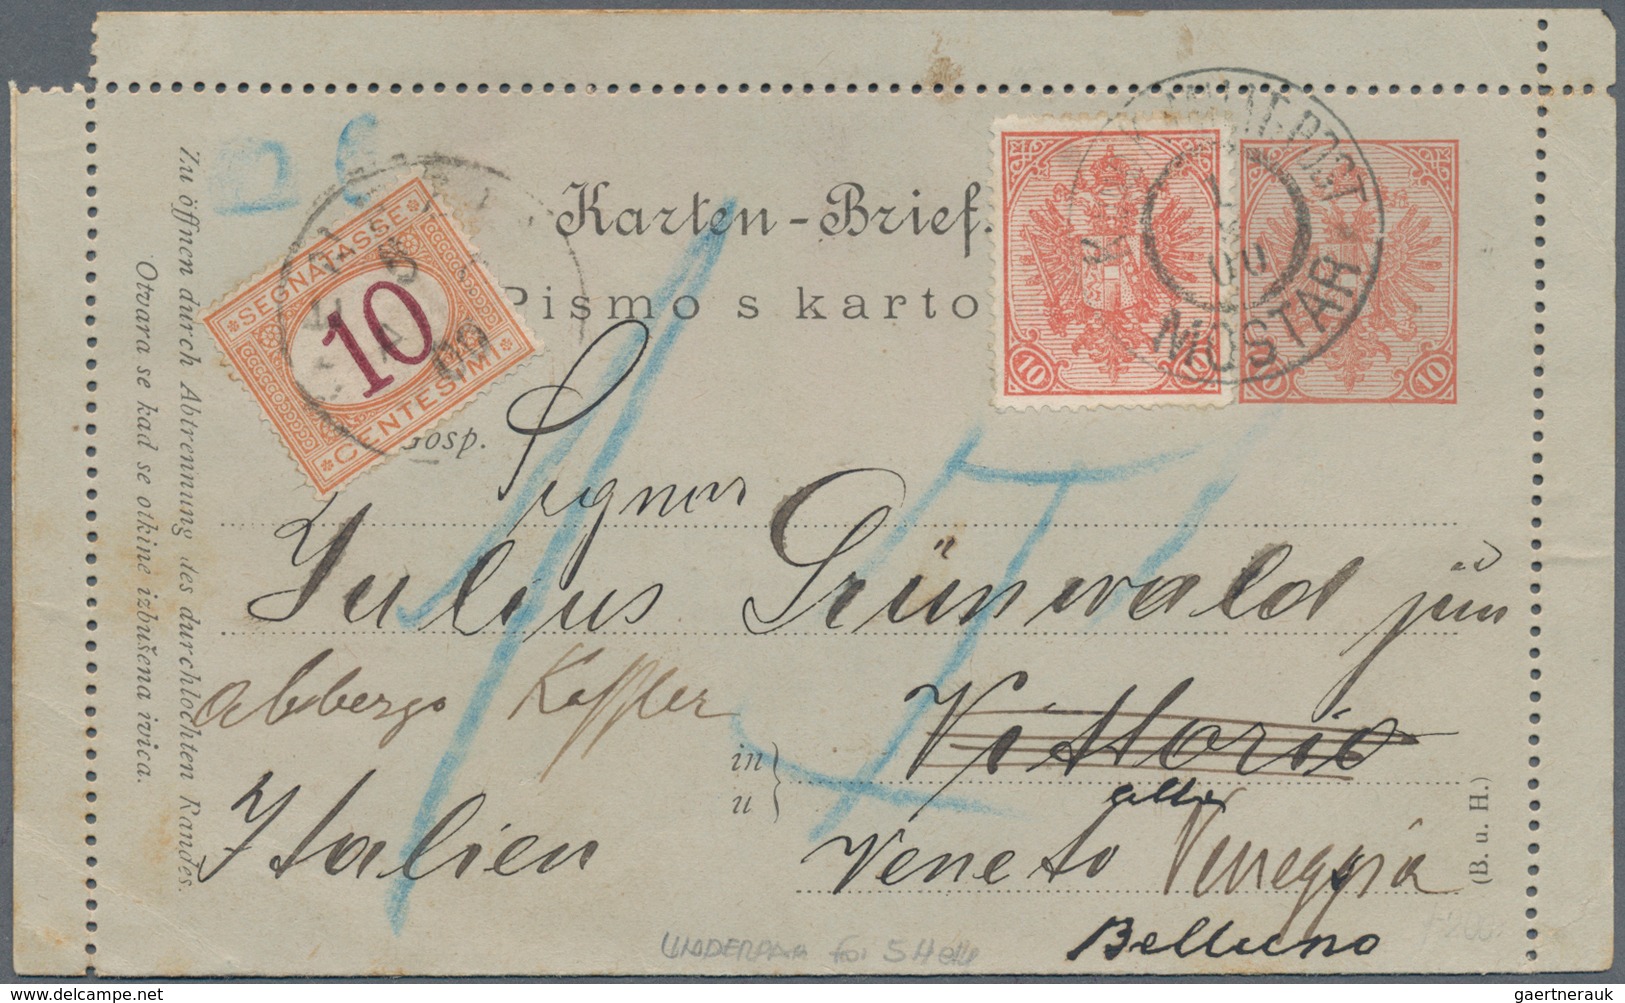 Karten-Brief.
Pismo s karto
SEGNATASSE
10
CENTESIMI
5
00
10 10
10
MOSTAR
Gosp.
Signor
Julius Grünwald jun
Vittorio
in
u
Italien
Veneto
Belluno
(B. u. H.)
15
Zu öffnen durch Abtrennung des durchlochten Randes.
Otvara se kad se otkine izbušena ivica.
gaertnerauk @ delcampe.net